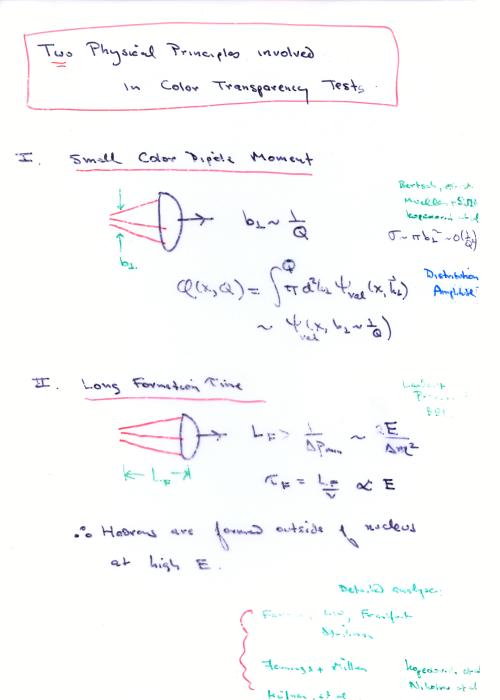 Two Physical Principles involved
in Color Transparency Tests.
I. Small Color Dipole Moment
b⊥ ~ 1/Q
b⊥
Bertsch, et al.
Mueller +
σ ~ πb⊥² ~ O(1/Q²)
φ(x,Q) = ∫^Q π d²k⊥ ψval(x, k⊥)
Distribution
Amplitude
~ ψval(x, b⊥ ~ 1/Q)
II. Long Formation Time
L_F > 1/Δp ~ 2E/Δm²
← L_F →
τ_F = L_F/v ∝ E
∴ Hadrons are formed outside of nucleus
at high E.
Detailed analyses:
Farrar, Liu, Frankfurt
Strikman
Jennings + Miller
Kopeliovich, et al
Nikolaev et al
Hüfner, et al